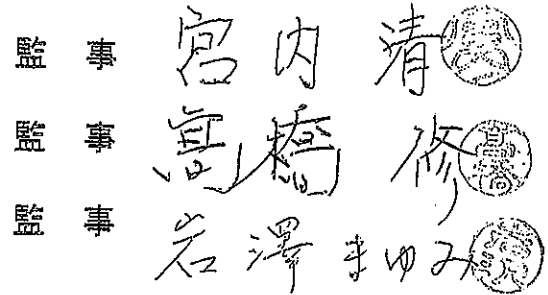 監事 宮内 清
監事 高橋 修
監事 岩澤 まゆみ